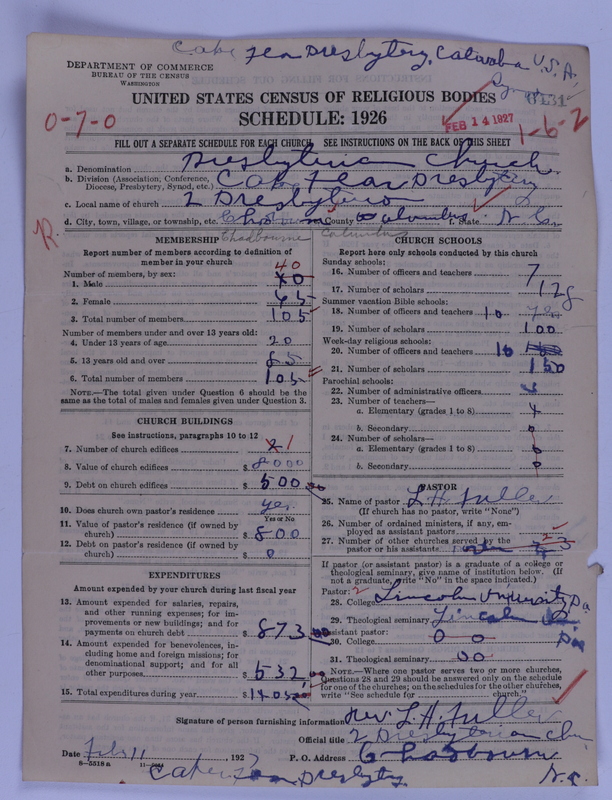 Cape Fear Presbytery, Catawba U.S.A.
DEPARTMENT OF COMMERCE
BUREAU OF THE CENSUS
WASHINGTON
UNITED STATES CENSUS OF RELIGIOUS BODIES
0-7-0
SCHEDULE: 1926
FEB 14 1927
1-6-2
FILL OUT A SEPARATE SCHEDULE FOR EACH CHURCH SEE INSTRUCTIONS ON THE BACK OF THIS SHEET
a. Denomination Presbyterian Church
b. Division (Association, Conference, Diocese, Presbytery, Synod, etc.) Cape Fear Presbytery
c. Local name of church 2 Presbyterian
d. City, town, village, or township, etc. Chadbourn County Columbus f. State N. C.
Chadbourne Columbus
R
MEMBERSHIP
Report number of members according to definition of member in your church
Number of members, by sex:
1. Male 40
2. Female 65
3. Total number of members 105
Number of members under and over 13 years old:
4. Under 13 years of age 20
5. 13 years old and over 85
6. Total number of members 105
NOTE.—The total given under Question 6 should be the same as the total of males and females given under Question 3.
CHURCH BUILDINGS
See instructions, paragraphs 10 to 12
7. Number of church edifices 1
8. Value of church edifices $ 8000
9. Debt on church edifices $ 500 00
10. Does church own pastor's residence yes
Yes or No
11. Value of pastor's residence (if owned by church) $ 800
12. Debt on pastor's residence (if owned by church) $ 0
EXPENDITURES
Amount expended by your church during last fiscal year
13. Amount expended for salaries, repairs, and other running expenses; for improvements or new buildings; and for payments on church debt $ 873 00
14. Amount expended for benevolences, including home and foreign missions; for denominational support; and for all other purposes $ 532 00
15. Total expenditures during year $ 1405
CHURCH SCHOOLS
Report here only schools conducted by this church
Sunday schools:
16. Number of officers and teachers 7
17. Number of scholars 128
Summer vacation Bible schools:
18. Number of officers and teachers 10
19. Number of scholars 100
Week-day religious schools:
20. Number of officers and teachers 10
21. Number of scholars 150
Parochial schools:
22. Number of administrative officers
23. Number of teachers—
a. Elementary (grades 1 to 8)
b. Secondary 0
24. Number of scholars—
a. Elementary (grades 1 to 8) 0
b. Secondary 0
PASTOR
25. Name of pastor L. H. Fuller
(If church has no pastor, write "None")
26. Number of ordained ministers, if any, employed as assistant pastors
27. Number of other churches served by the pastor or his assistants
If pastor (or assistant pastor) is a graduate of a college or theological seminary, give name of institution below. (If not a graduate, write "No" in the space indicated.)
Pastor:
28. College Lincoln University Pa
29. Theological seminary Lincoln
Assistant pastor:
30. College 0 0
31. Theological seminary 00
NOTE.—Where one pastor serves two or more churches, Questions 28 and 29 should be answered only on the schedule for one of the churches; on the schedules for the other churches, write "See schedule for church."
Signature of person furnishing information Rev. L. H. Fuller
Official title 2 Presbyterian Chu
Date Feb 11 1927 P. O. Address Chadbourne
8—5518a
N. C.
Cape Fear Presbytery